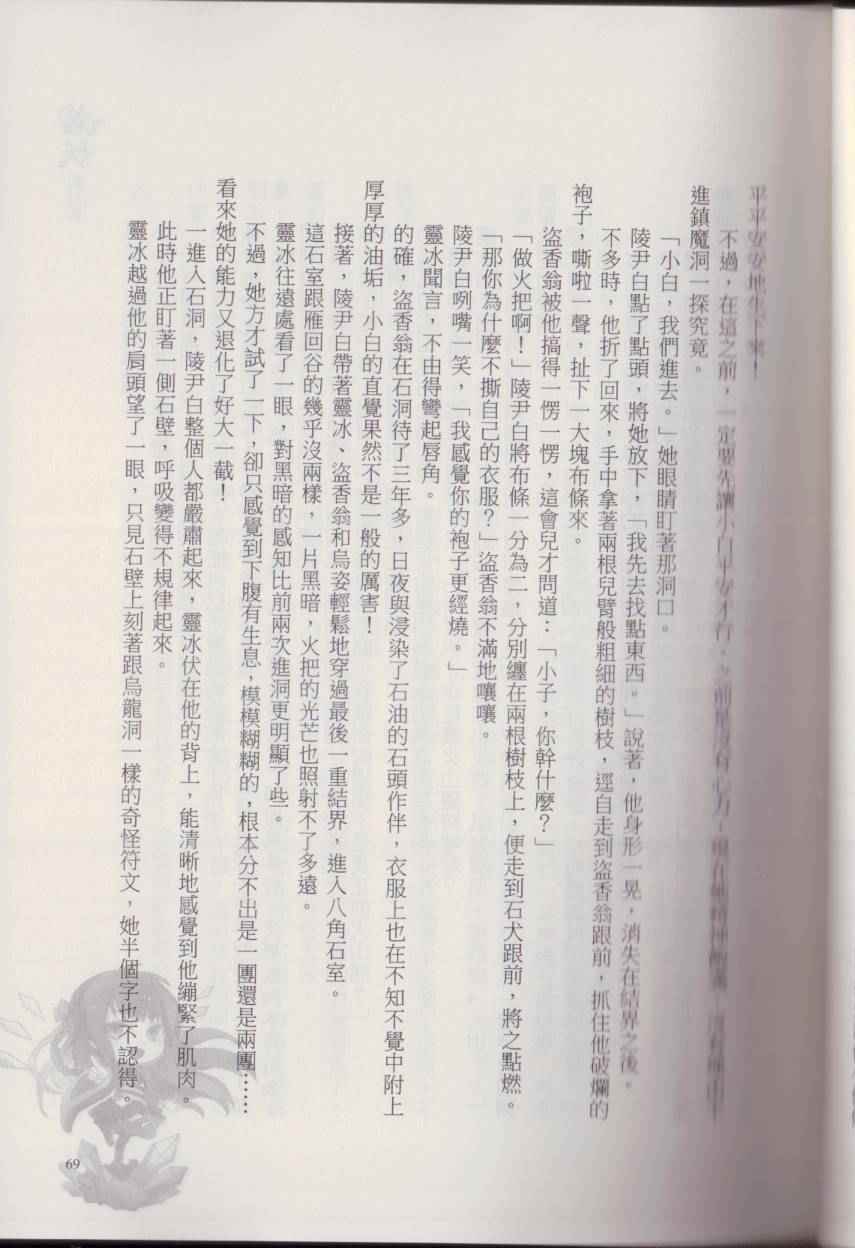 平平安安地生下來！
不過，在這之前，一定要先讓小白平安才行。之前是
進鎮魔洞一探究竟。
「小白，我們進去。」她眼睛盯著那洞口。
陵尹白點了點頭，將她放下，「我先去找點東西。」說著，他身形一晃，消失在結界之後。
不多時，他折了回來，手中拿著兩根兒臂般粗細的樹枝，逕自走到盜香翁跟前，抓住他破爛的
袍子，嘶啦一聲，扯下一大塊布條來。
盜香翁被他搞得一愣一愣，這會兒才問道：「小子，你幹什麼？」
「做火把啊！」陵尹白將布條一分為二，分別纏在兩根樹枝上，便走到石犬跟前，將之點燃。
「那你為什麼不撕自己的衣服？」盜香翁不滿地嚷嚷。
陵尹白咧嘴一笑，「我感覺你的袍子更經燒。」
靈冰聞言，不由得彎起唇角。
的確，盜香翁在石洞待了三年多，日夜與浸染了石油的石頭作伴，衣服上也在不知不覺中附上
厚厚的油垢，小白的直覺果然不是一般的厲害！
接著，陵尹白帶著靈冰、盜香翁和烏姿輕鬆地穿過最後一重結界，進入八角石室。
這石室跟雁回谷的幾乎沒兩樣，一片黑暗，火把的光芒也照射不了多遠。
靈冰往遠處看了一眼，對黑暗的感知比前兩次進洞更明顯了些。
不過，她方才試了一下，卻只感覺到下腹有生息，模模糊糊的，根本分不出是一團還是兩團……
看來她的能力又退化了好大一截！
一進入石洞，陵尹白整個人都嚴肅起來，靈冰伏在他的背上，能清晰地感覺到他繃緊了肌肉。
此時他正盯著一側石壁，呼吸變得不規律起來。
靈冰越過他的肩頭望了一眼，只見石壁上刻著跟烏龍洞一樣的奇怪符文，她半個字也不認得。
69